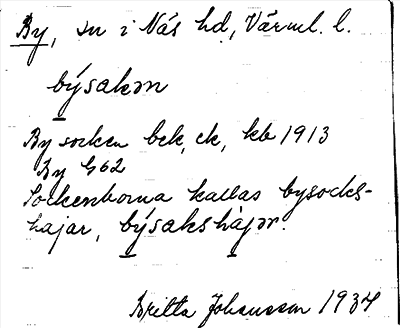 By, sn i Näs hd, Värml. l.
býsakən
By socken bek, ek, kb 1913
By G62
Sockenborna kallas bysocks-
hajar, býsakshàjər.
Britta Johansson 1934